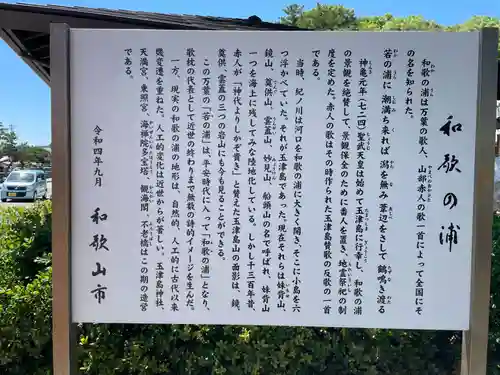 和歌の浦
和歌の浦は万葉の歌人、山部赤人の歌一首によって全国にそ
の名を知られた。
若の浦に 潮満ち来れば 潟を無み 葦辺をさして 鶴鳴き渡る
神亀元年(七二四)聖武天皇は始めて玉津島に行幸し、和歌の浦
の景観を絶賛して、景観保全のために番人を置き、地霊祭祀の制
度を定めた。赤人の歌はその時作られた玉津島賛歌の反歌の一首
である。
当時、紀ノ川は河口を和歌の浦に大きく開き、そこに小島を六
つ浮かべていた。それが玉津島であった。現在それらは、妹背山、
鏡山、奠供山、雲蓋山、妙見山、船頭山の名で呼ばれ、妹背山
一つを海上に残してみな陸地化している。しかし千三百年昔、
赤人が「神代よりしかぞ貴き」と讃えた玉津島山の面影は、鏡
奠供 雲蓋の三つの岩山にも今も見ることができる。
この万葉の「若の浦」は平安時代に入って「和歌の浦」となり、
歌枕の代表として近世の終わりまで無数の詩的イメージを生んだ。
一方、現実の和歌の浦の地形は、自然的、人工的に古代以来
幾変遷を重ねた。人工的変化は近世からが著しい。玉津島神社、
天満宮、東照宮、海禅院多宝塔、観海閣、不老橋はこの期の造営
である。
令和四年九月
和歌山市